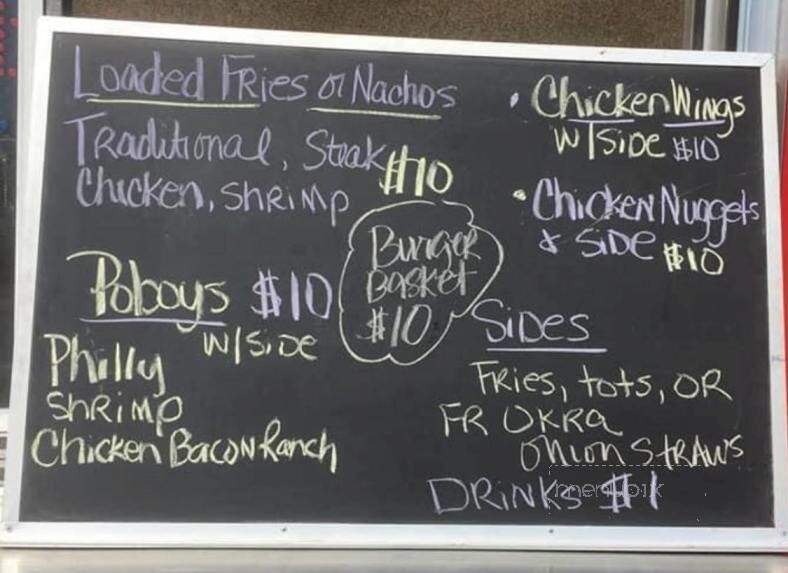 Loaded Fries or Nachos
Traditional, Steak
Chicken, Shrimp $10
Poboys $10
w/Side
Philly
Shrimp
Chicken Bacon Ranch
Burger
Basket
$10
• Chicken Wings
w/Side $10
• Chicken Nuggets
& Side $10
Sides
Fries, tots, OR
FR OKRA
Onion Straws
Drinks $1
menupix